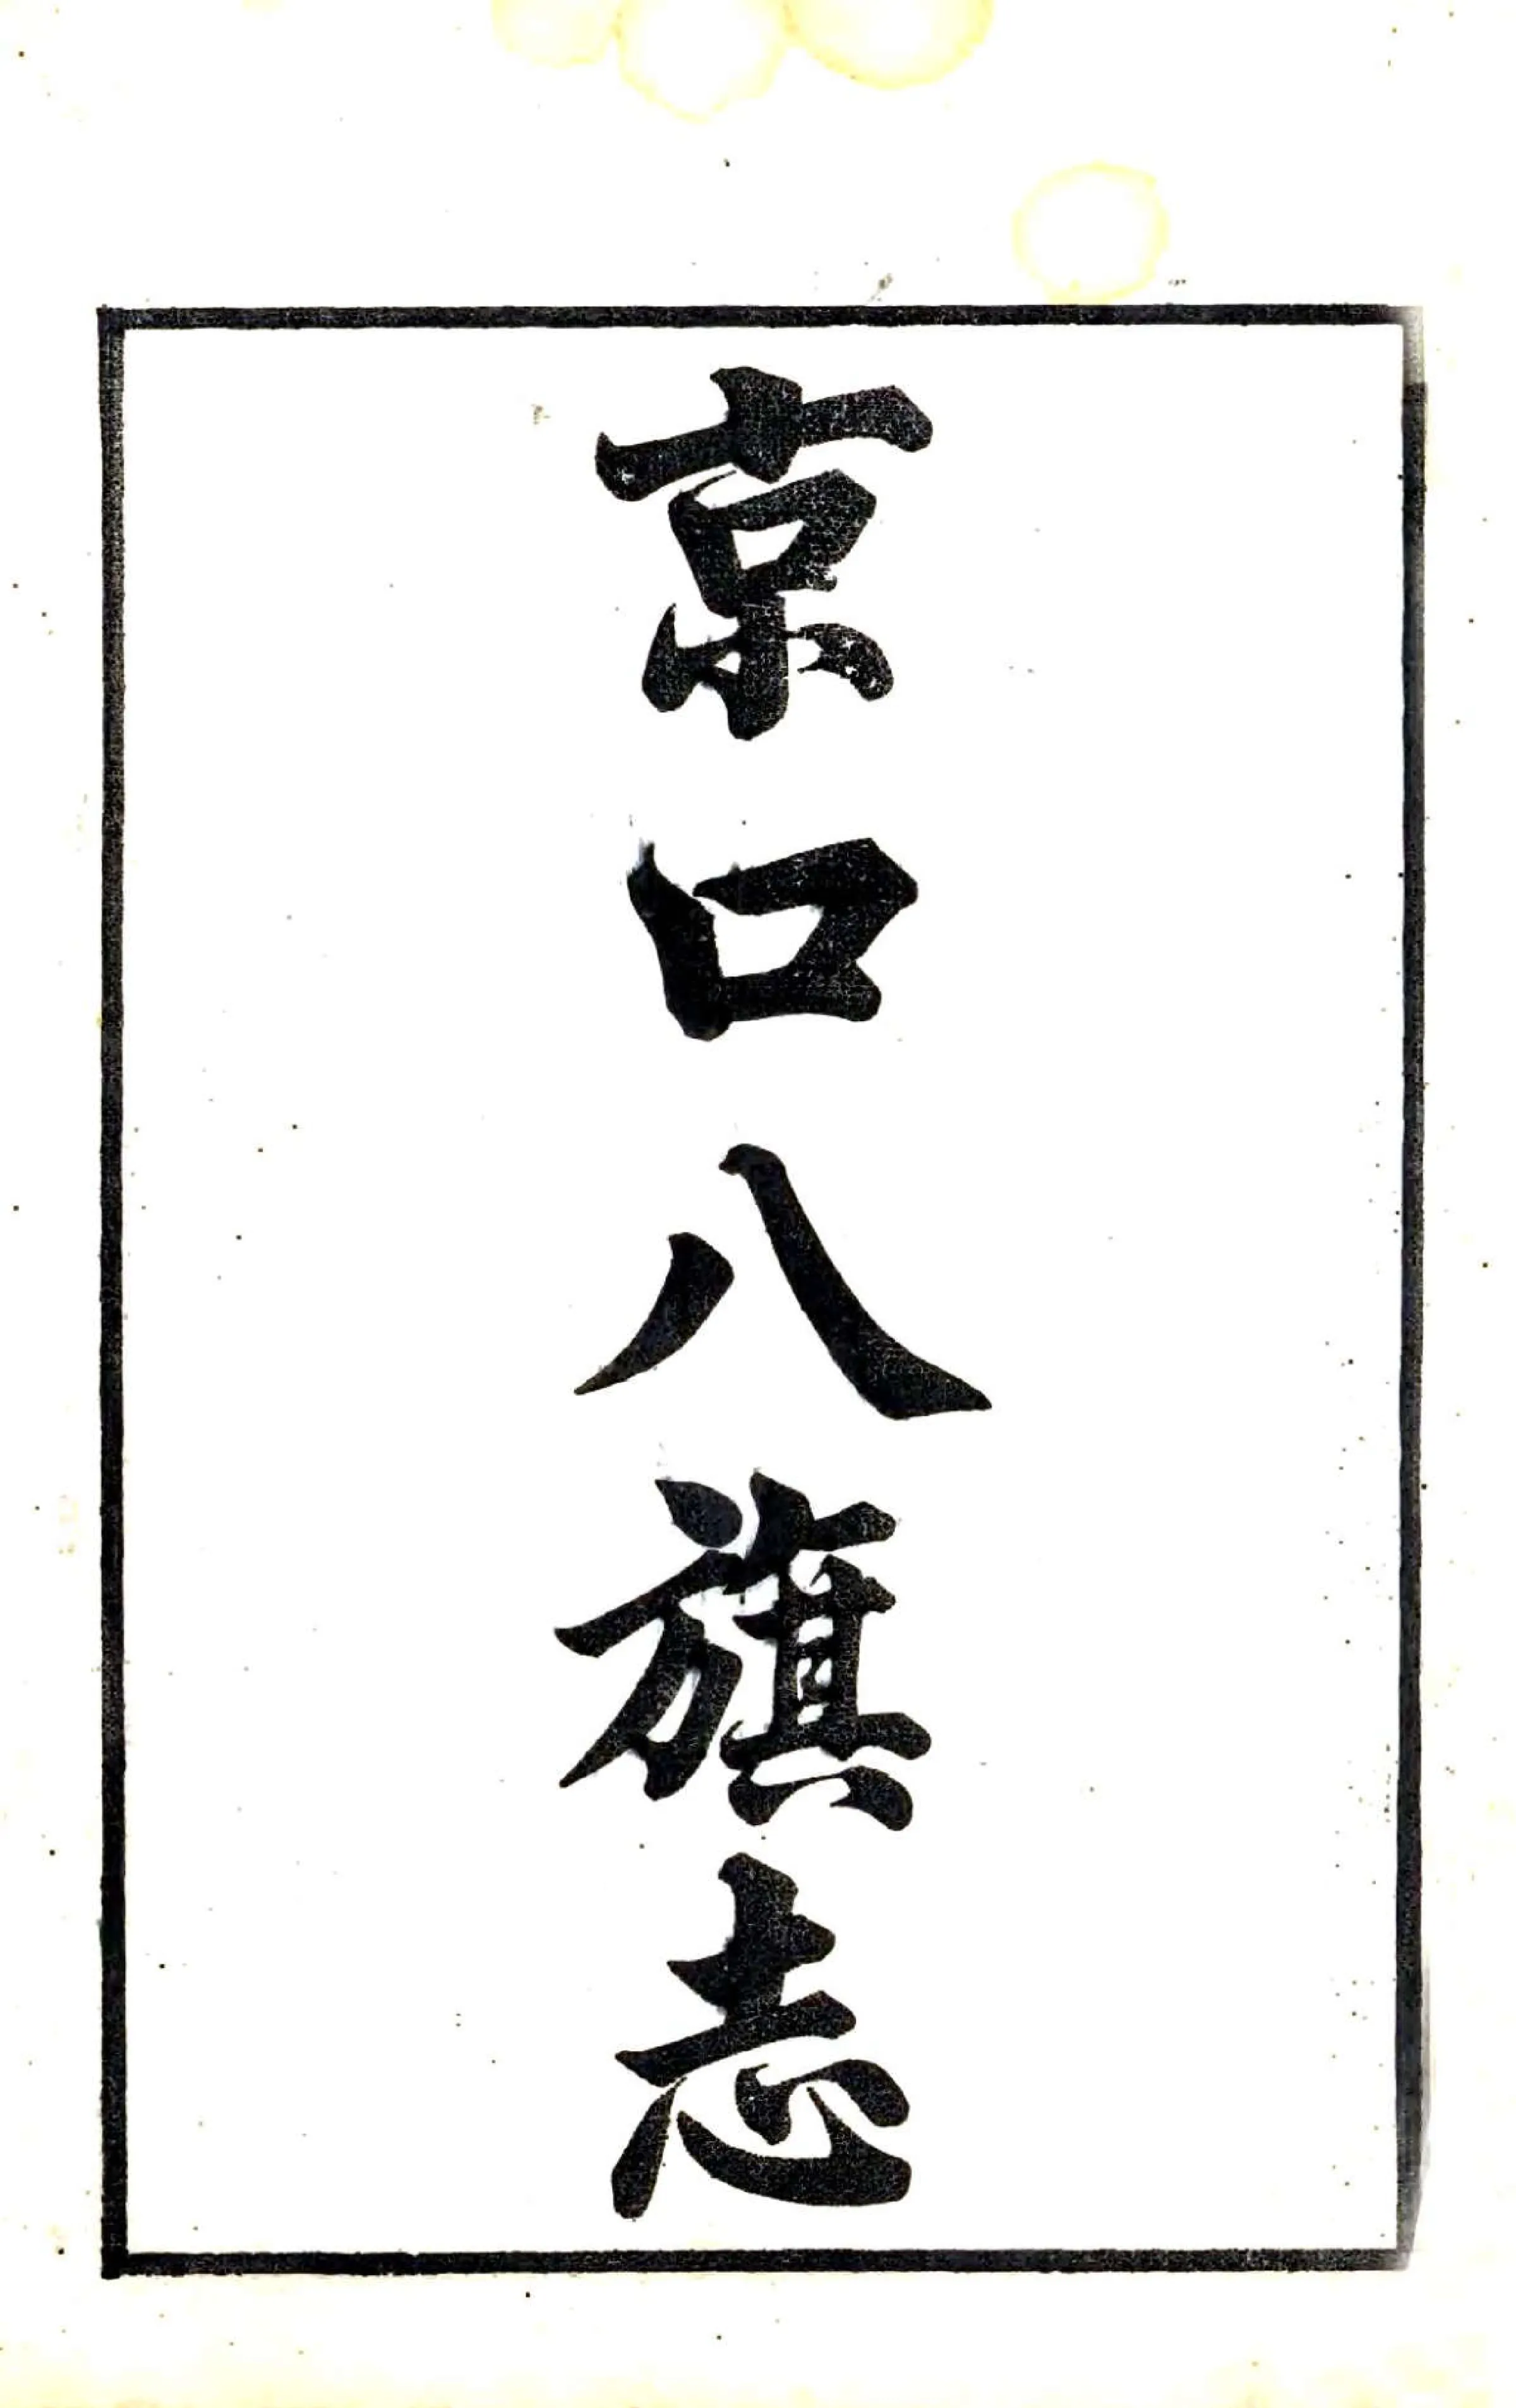 京口八旗志